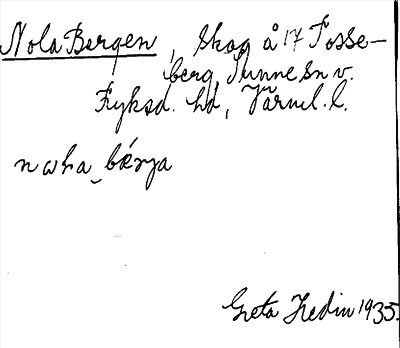 Nola Bergen, Skog å 17 Fosse-
berg, Sunne sn v.
Fryksd. hd, Värml. l.
nωha_bǽrya
Greta Hedin 1935.